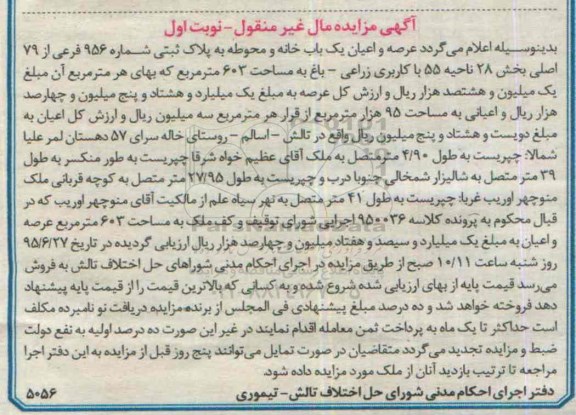 آگهی مزایده مال غیر منقول - نوبت اول
بدینوسیله اعلام می گردد عرصه و اعیان یک باب خانه و محوطه به پلاک ثبتی شماره ۹۵۶ فرعی از ۷۹
اصلی بخش ۲۸ ناحیه ۵۵ با کاربری زراعی - باغ به مساحت ۶۰۳ مترمربع که بهای هر مترمربع آن مبلغ
یک میلیون و هشتصد هزار ریال و ارزش کل عرصه به مبلغ یک میلیارد و هشتاد و پنج میلیون و چهارصد
هزار ریال و اعیانی به مساحت ۹۵ هزار مترمربع از قرار هر مترمربع سه میلیون ریال و ارزش کل اعیان به
مبلغ دویست و هشتاد و پنج میلیون ریال واقع در تالش - اسالم - روستای خاله سرای ۵۷ دهستان لمر علیا
شمالا: چپریست به طول ۴/۹۰ مترمتصل به ملک آقای عظیم خواه شرقا چپریست به طور منکسر به طول
۳۹ متر متصل به شالیزار شمخالی جنوبا درب و چپریست به طول ۲۷/۹۵ متر متصل به کوچه قربانی ملک
منوچهر اوریب غربا: چپریست به طول ۴۱ متر متصل به نهر سیاه علم از مالکیت آقای منوچهر اوریب که در
قبال محکوم به پرونده کلاسه ۹۵۰۰۳۶ اجرایی شورای توقیف و کف ملک به مساحت ۶۰۳ مترمربع عرصه
و اعیان به مبلغ یک میلیارد و سیصد و هفتاد میلیون و چهارصد هزار ریال ارزیابی گردیده در تاریخ ۹۵/۶/۲۷
روز شنبه ساعت ۱۰/۱۱ صبح از طریق مزایده در اجرای احکام مدنی شوراهای حل اختلاف تالش به فروش
می رسد قیمت پایه از بهای ارزیابی شده شروع شده و به کسانی که بالاترین قیمت را از قیمت پایه پیشنهاد
دهد فروخته خواهد شد و ده درصد مبلغ پیشنهادی فی المجلس از برنده مزایده دریافت نو نامبرده مکلف
است حداکثر تا یک ماه به پرداخت ثمن معامله اقدام نمایند در غیر این صورت ده درصد اولیه به نفع دولت
ضبط و مزایده تجدید می گردد متقاضیان در صورت تمایل می توانند پنج روز قبل از مزایده به این دفتر اجرا
مراجعه تا ترتیب بازدید آنان از ملک مورد مزایده داده شود.
دفتر اجرای احکام مدنی شورای حل اختلاف تالش - تیموری ۵۰۵۶